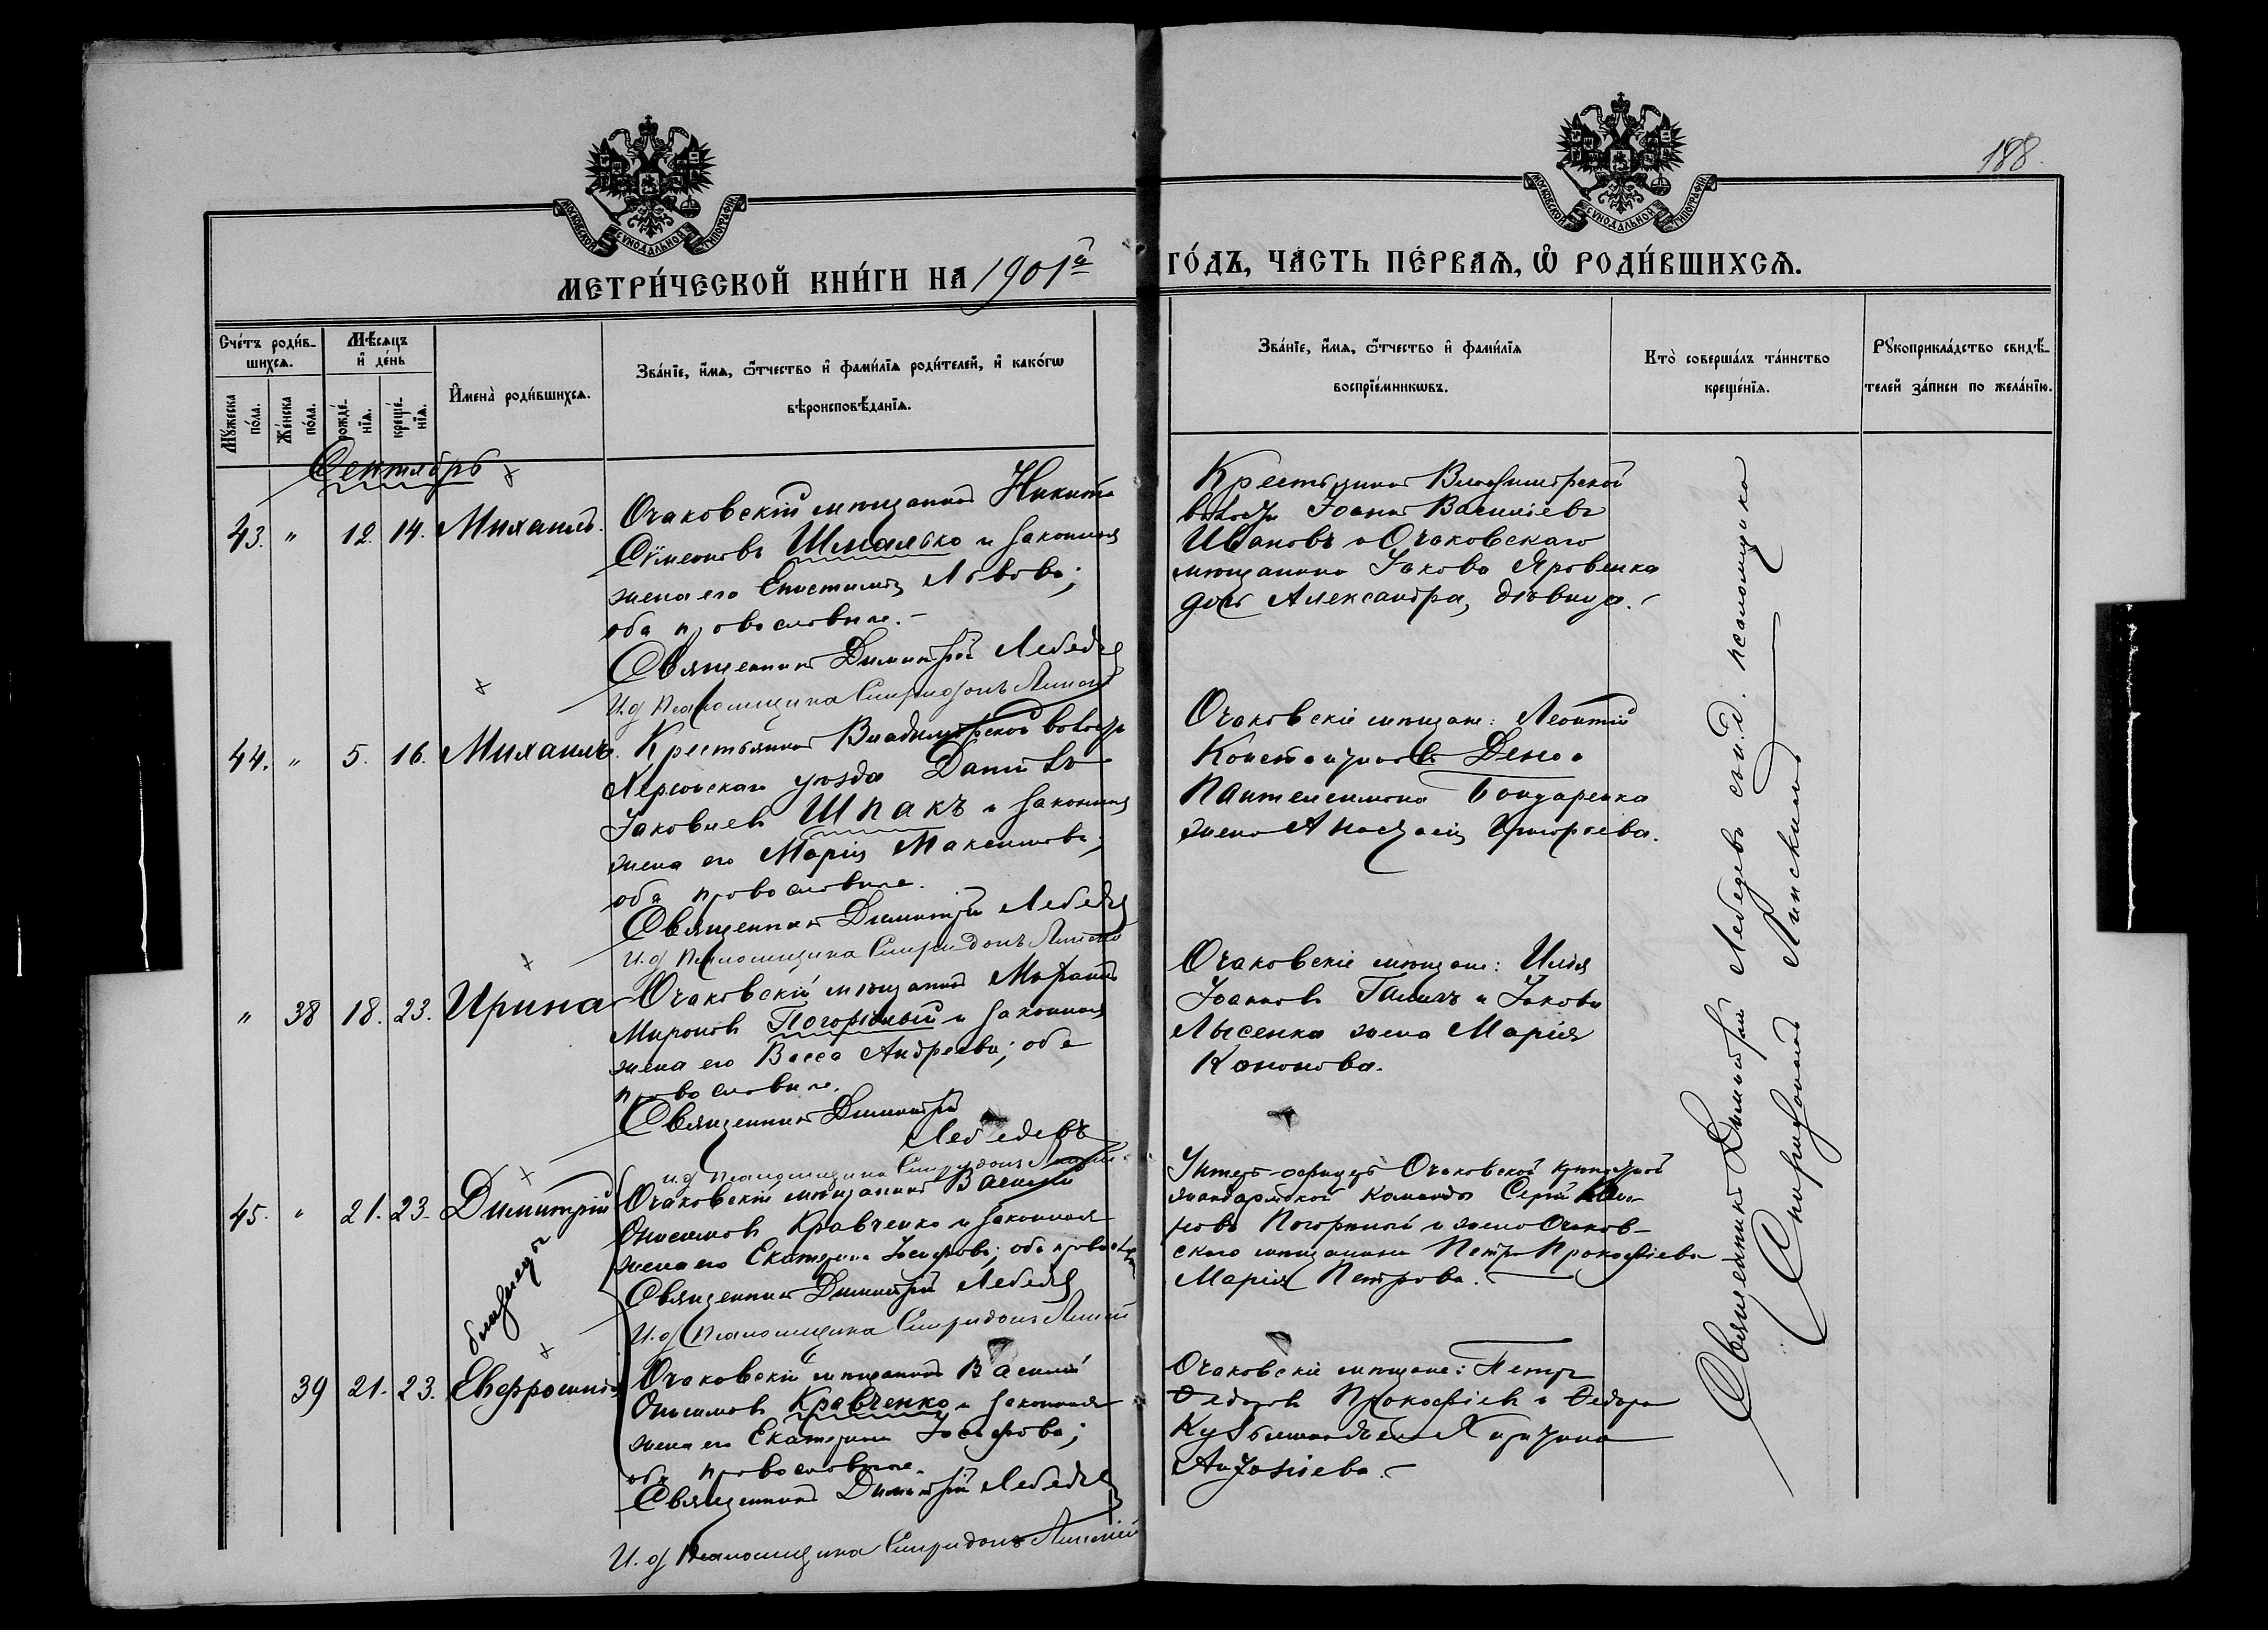 188.
МОСКОВСКОЙ СУНОДАЛЬНОЙ ТИПОГРАФІИ
МОСКОВСКОЙ СУНОДАЛЬНОЙ ТИПОГРАФІИ
МЕТРИ́ЧЕСКОЙ КНИ́ГИ НА 1901й
ГО́ДЪ, ЧА́СТЬ ПЕ́РВАѦ, Ѡ҆ РОДИ́ВШИХСѦ.
Сче́тъ роди́в-
шихсѧ.
Мꙋ́жеска по́ла.
Же́нска по́ла.
Мѣ́сѧцъ
и҆ де́нь
рожде́-
нїѧ.
креще́-
нїѧ.
И҆мена̀ роди́вшихсѧ.
Зва́нїе, и҆́мѧ, ѻ҆́тчество и҆ фами́лїѧ роди́телей, и҆ како́гѡ
вѣроисповѣ́данїѧ.
Зва́нїе, и҆́мѧ, ѻ҆́тчество и҆ фами́лїѧ
воспрїе́мникѡвъ.
Кто̀ соверша́лъ та́инство
креще́нїѧ.
Рꙋкоприкла́дство свидѣ́-
телей за́писи по жела́нїю.
Сентябрь
43. " 12. 14. Михаилъ.
Очаковскій мѣщанинъ Никита
Симеоновъ Шмалько и законная
жена его Епистимія Львова;
оба православные.-
Священникъ Димитрій Лебедев
И.д. Псаломщика Спиридонъ
Крестьянинъ Владимірской
волости Іоаннъ Василіевъ
Ивановъ и Очаковскаго
мѣщанина Іакова Яровенка
дочь Александра, дѣвица.-
44. " 5. 16. Михаилъ.
Крестьянинъ Владимірской волости
Херсонскаго уѣзда Даніилъ
Іаковлевъ Шпакъ и законная
жена его Марія Максимова;
оба православные.
Священникъ Димитрій Лебедев
И.д. Псаломщика Спиридонъ
Очаковскіе мѣщане: Леонтій
Константиновъ и
Пантелеимона Бондаренка
жена Анастасія Григорьева.
" 38 18. 23. Ирина
Очаковскій мѣщанинъ
Мироновъ Погорѣлый и законная
жена его Васса Андреева; оба
православные.
Священникъ Димитрій
Лебедевъ
и.д. Псаломщика Спиридонъ
Очаковскіе мѣщане: Илія
Іоанновъ и Іакова
Лысенка жена Марія
Кононова.
45. " 21. 23. Димитрій
близнецы
Очаковскій мѣщанинъ Василій
Онисимовъ Кравченко и законная
жена его Екатерина Іосифова; оба правосл.
Священникъ Димитрій Лебедев
И.д. Псаломщика Спиридонъ
Унтеръ-офицеръ Очаковской крѣпостной
жандармской команды Сергій
Погорѣлый и жена Очаков-
скаго мѣщанина Петра Прокофіева
Марія Петрова.
39 21. 23. Евфросинія
Очаковскій мѣщанинъ Василій
Онисимовъ Кравченко и законная
жена его Екатерина Іосифова;
оба православные.
Священникъ Димитрій Лебедев
И.д. Псаломщика Спиридонъ
Очаковскіе мѣщане: Петръ
Ѳедоровъ Прокофіевъ и Ѳедора
Антоніева.-
Священникъ Димитрій Лебедевъ съ и.д. псаломщика
Спиридономъ